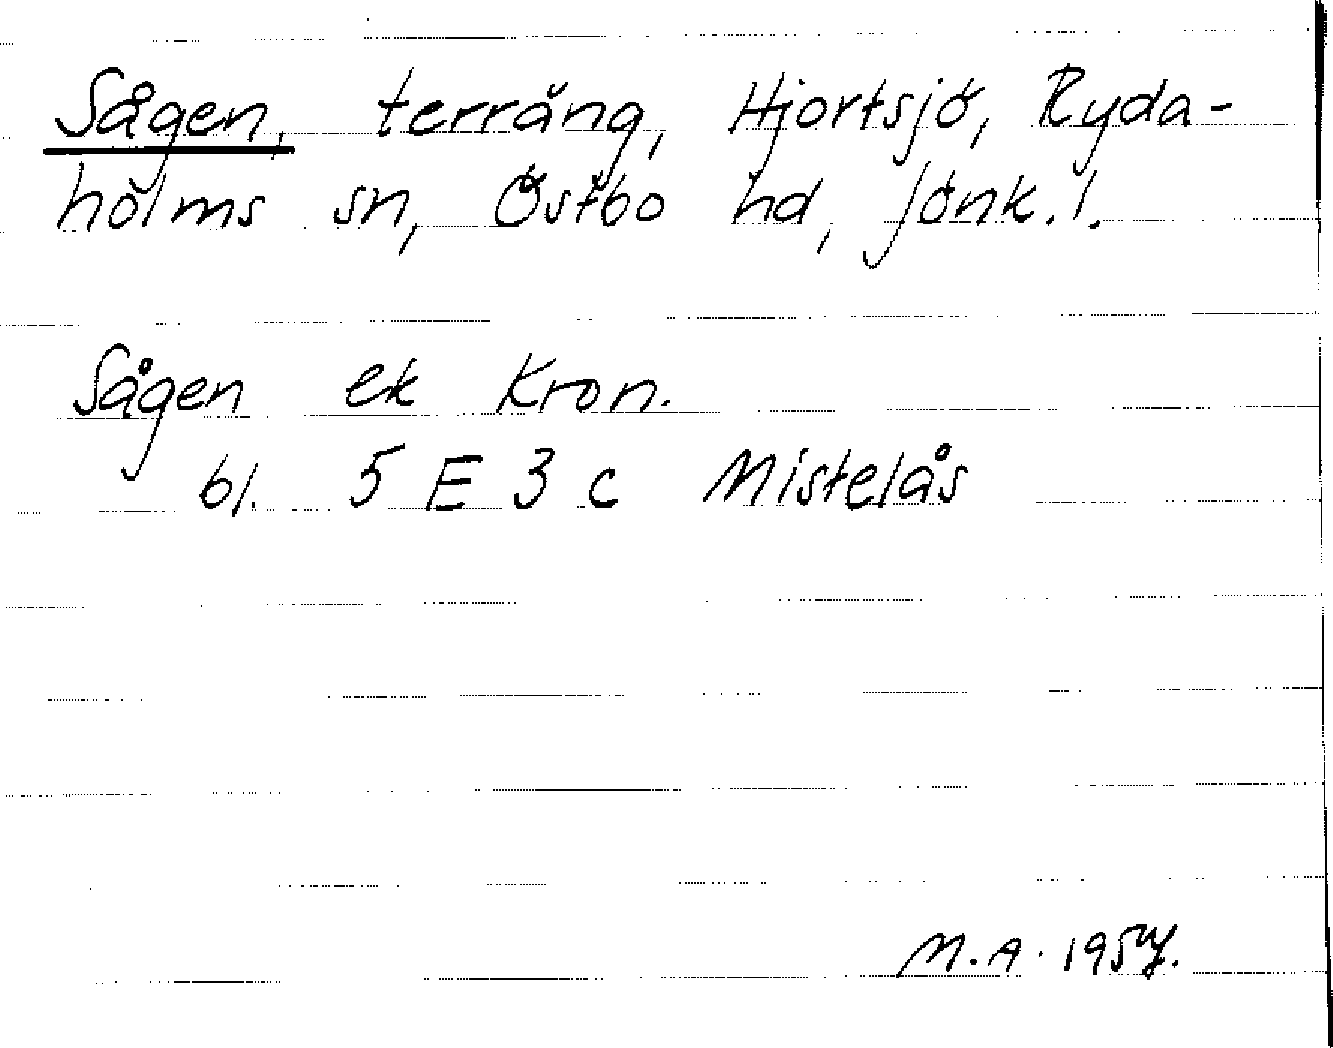 Sågen, terräng, Hjortsjö, Ryda-
holms sn, Östbo hd, Jönk. l.
Sågen ek Kron.
bl. 5 E 3 c Mistelås
M.A.